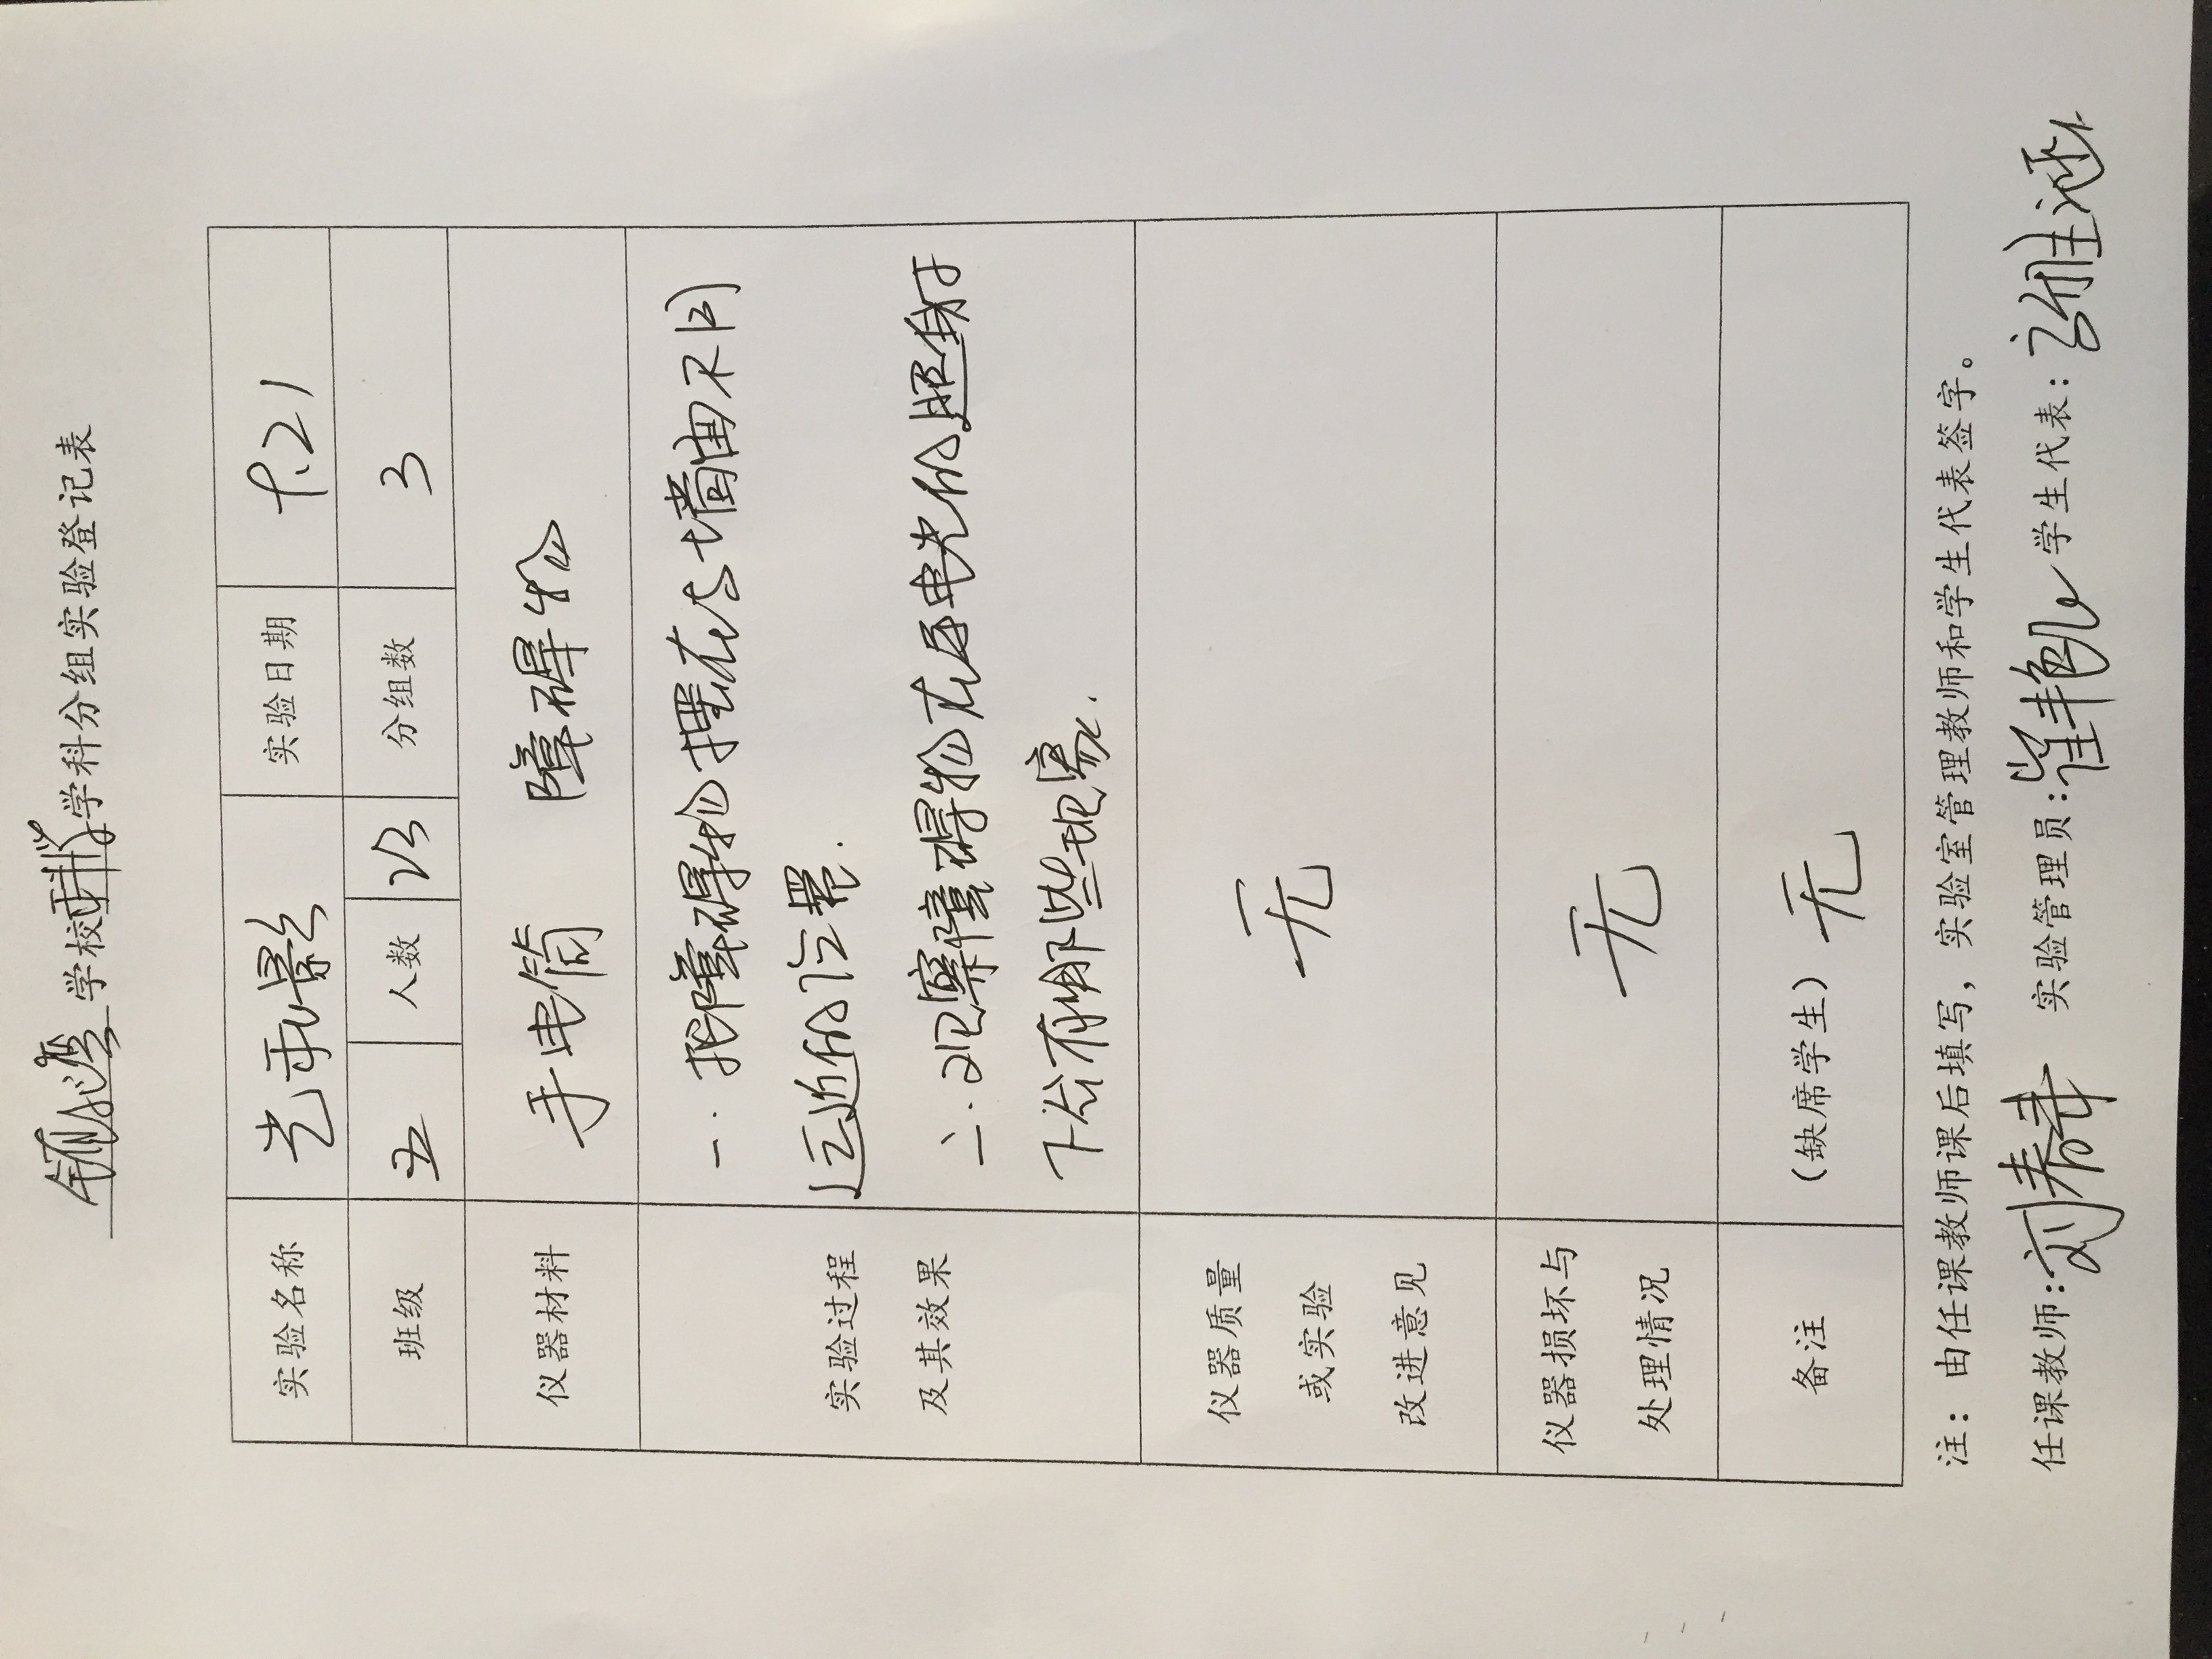 学校 科学 学科分组实验登记表
实验名称 光和影 实验日期 9.21
班级 五 人数 23 分组数 3
仪器材料 手电筒 障碍物
实验过程
及其效果
一.把障碍物摆在与墙面不同
远近的位置.
二.观察障碍物在手电光的照射
下会有哪些现象.
仪器质量
或实验
改进意见
无
仪器损坏与
处理情况
无
备注 (缺席学生) 无
注：由任课教师课后填写，实验室管理教师和学生代表签字。
任课教师: 刘春 实验管理员: 崔艳 学生代表: